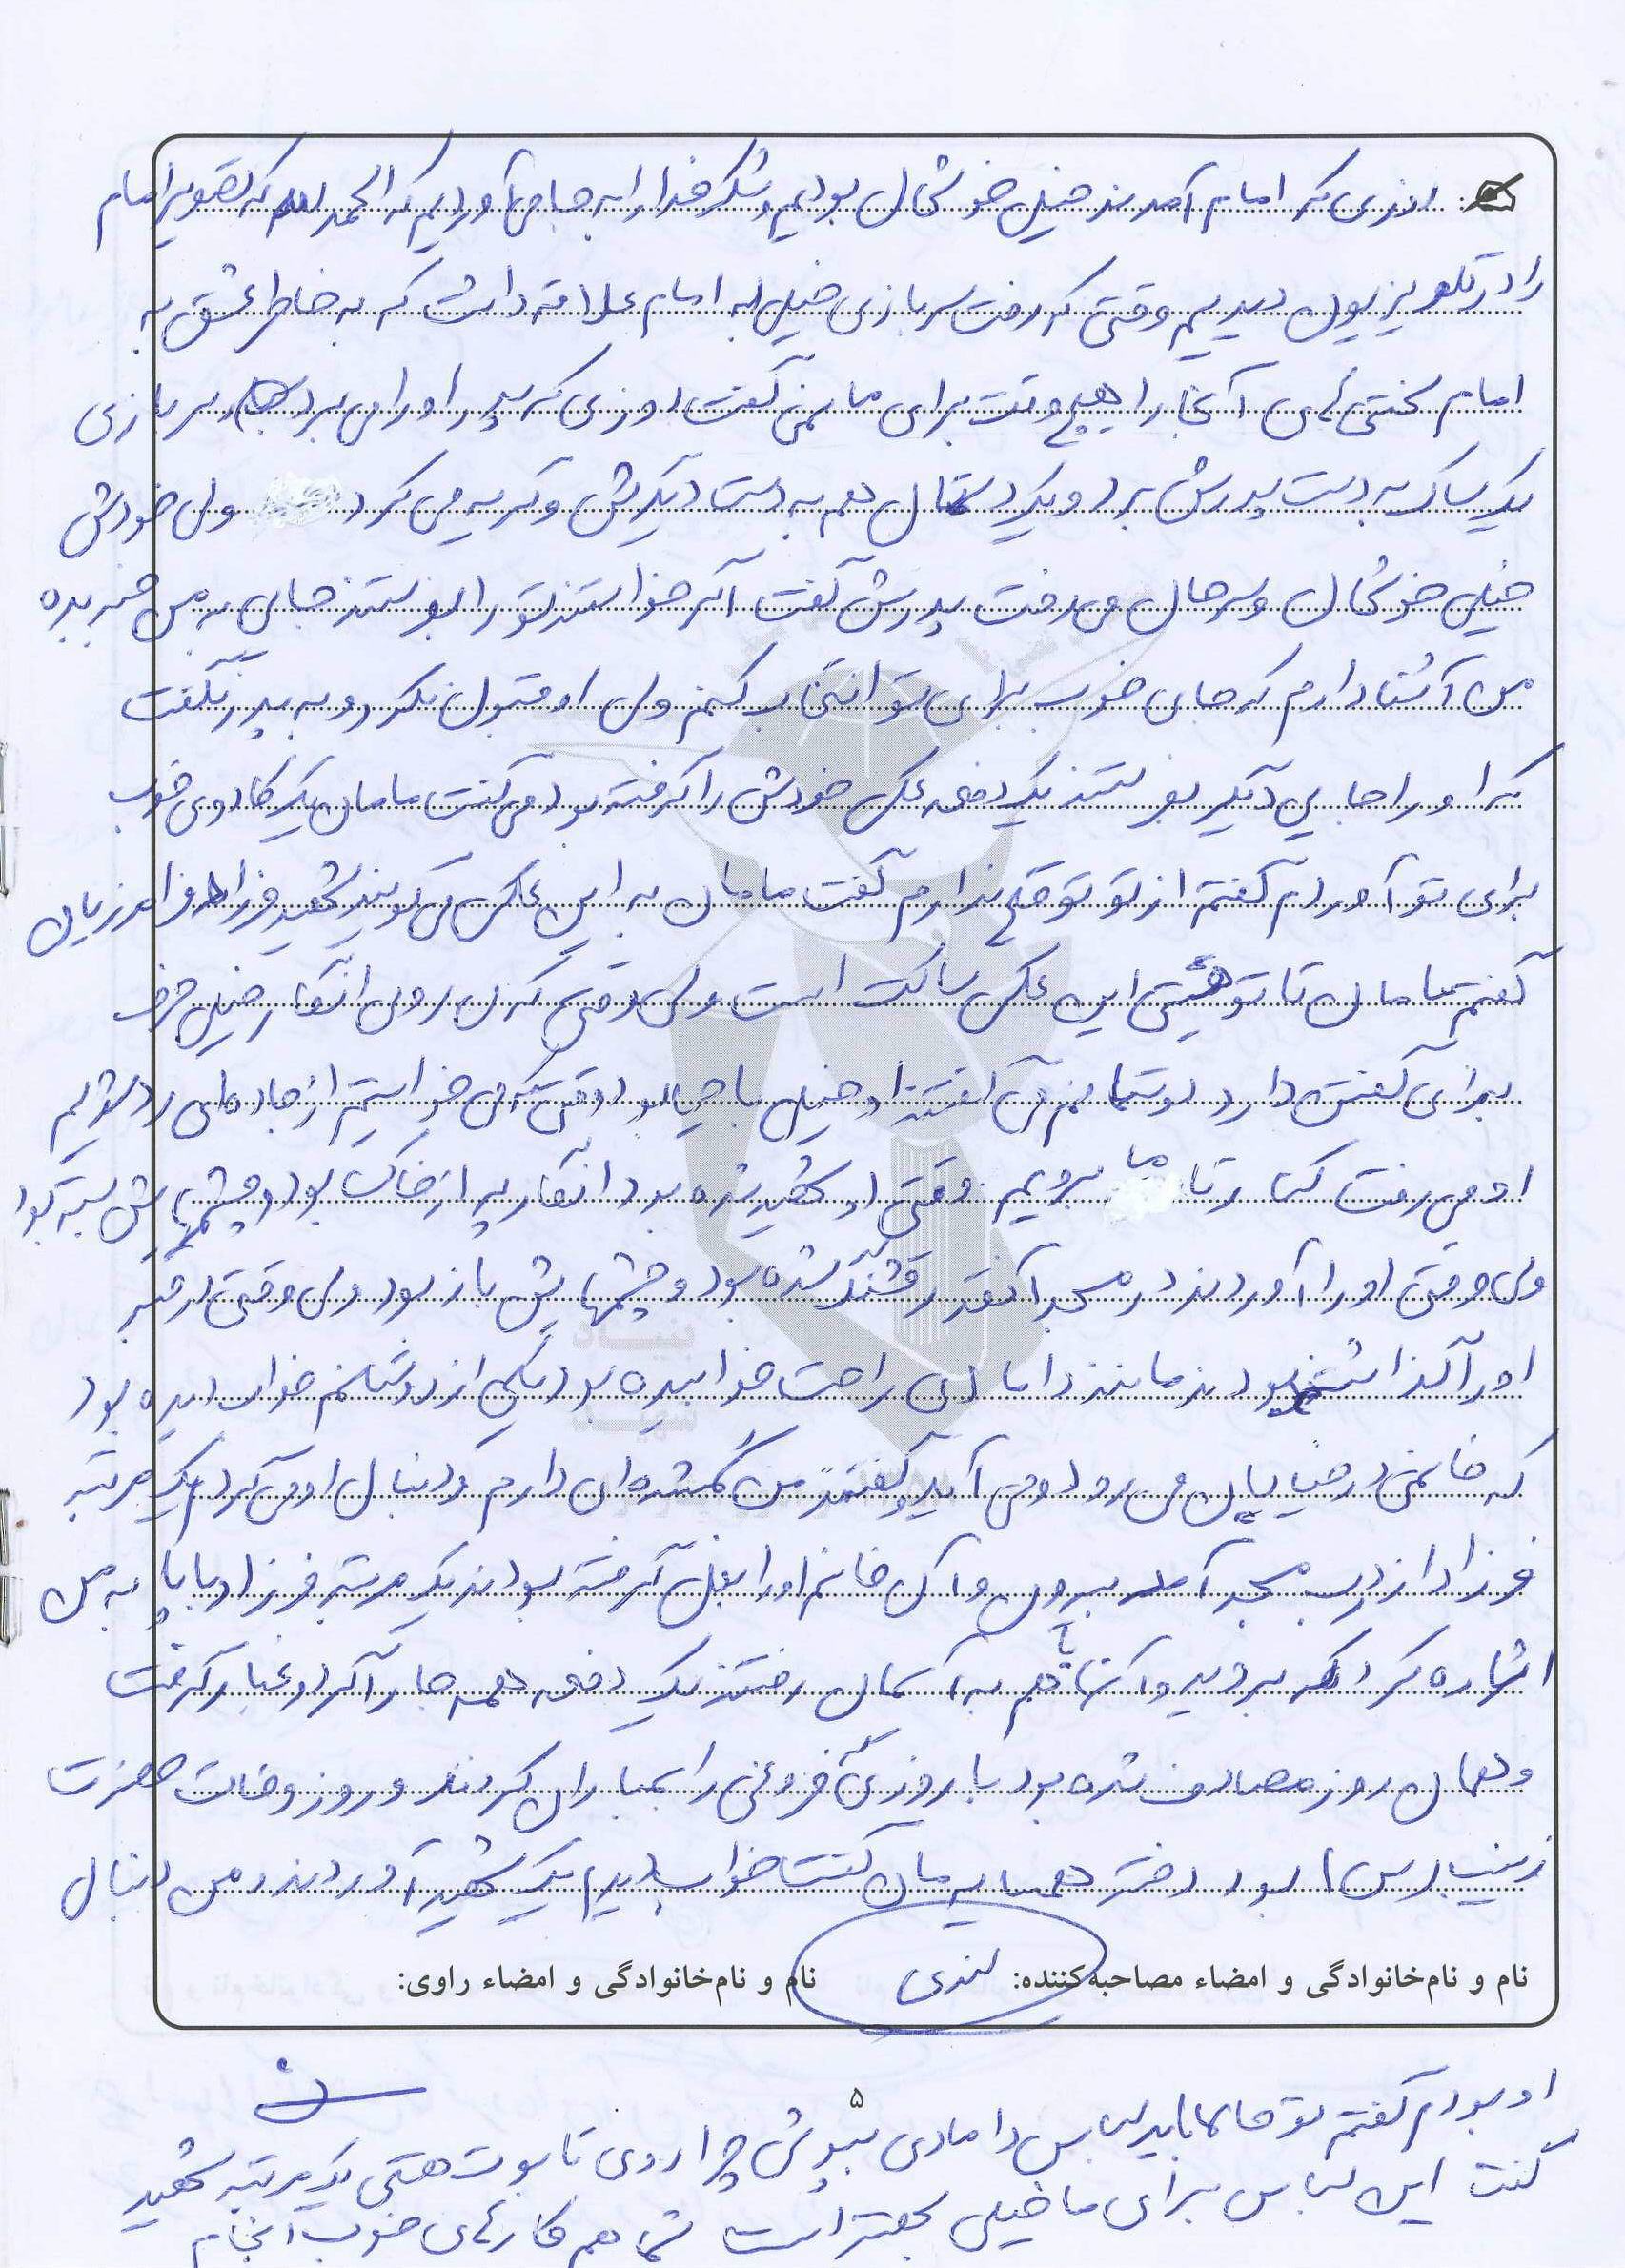 روزی که امام آمدند خیلی خوشحال بودیم و شکر خدا را به جا می آوردیم که الحمدلله که تصویر امام
را در تلویزیون دیدیم وقتی که رفت سربازی خیلی به امام علاقه داشت که به خاطر عشق به
امام سختی های آنجا را هیچ وقت برای ما نمی گفت روزی که پدر او را می برد سربازی
یک ساک به دست پدرش برد و یک دستمال هم به دست دیگرش و گریه می کرد ولی خودش
خیلی خوشحال و سرحال می رفت پدرش گفت اگر خواستند تو را بفرستند جایی به من خبر بده
من آشنا دارم که جای خوب برای تو انتخاب کنم ولی او قبول نکرد و به پدر نگفت
که او را جایی دیگر بفرستند یک دفعه عکس خودش را گرفته بود می گفت مامان یک کادوی خوب
برای تو آوردم گفتم از تو توقع ندارم گفت مامان به این عکس می گویند شهید فرزاد فرامرزیان
گفتم مامان تا تو هستی این عکس ساکت است ولی وقتی که می روی انگار خیلی حرف
برای گفتن دارد او خیلی با حیا بود وقتی که می خواستیم از جاده ای رد شویم
او می رفت کنار تا ما برویم وقتی او شهید شده بود انگار پر از خاک بود و چشمهایش بسته بود
ولی وقتی او را آوردند در مسجد آنقدر قشنگ شده بود و چشمهایش باز بود ولی وقتی در قبر
او را گذاشته بودند مانند دامادی راحت خوابیده بود یکی از دوستانم خواب دیده بود
که خانمی در خیابان می رود و می آید و گفتند من گمشده ای دارم و دنبال او می گردم یک مرتبه
فرزاد از درب مسجد آمد بیرون و آن خانم او را بغل گرفته بودند یک مرتبه فرزاد با پا به من
اشاره کرد که بروید و آنها با هم به آسمان رفتند یک دفعه همه جا را گرد و غبار گرفت
و همان روز مصادف شده بود با روزی که فروغی را بمباران کردند و روز وفات حضرت
زینب (س) بود دختر همسایه مان گفت خواب دیدم یک شهید آوردند و من دنبال
نام و نام‌خانوادگی و امضاء مصاحبه‌کننده: نام و نام‌خانوادگی و امضاء راوی:
۵
او بودم گفتم تو حالا باید لباس دامادی بپوشی چرا روی تابوت هستی یک مرتبه شهید
گفت این لباس برای ما خیلی بهتر است شما هم کارهای خوب انجام